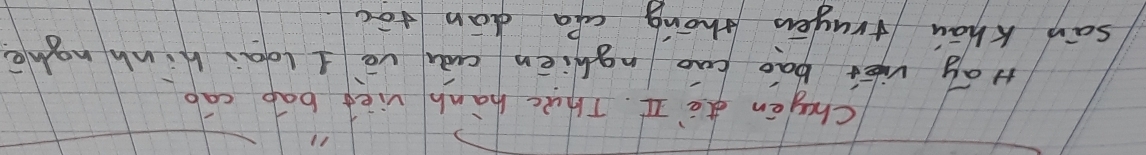 Chuyên đề II. Thực hành viết báo cáo
Hãy viết báo cáo nghiên cứu về 1 loại hình nghệ
sân khấu truyền thống của dân tộc